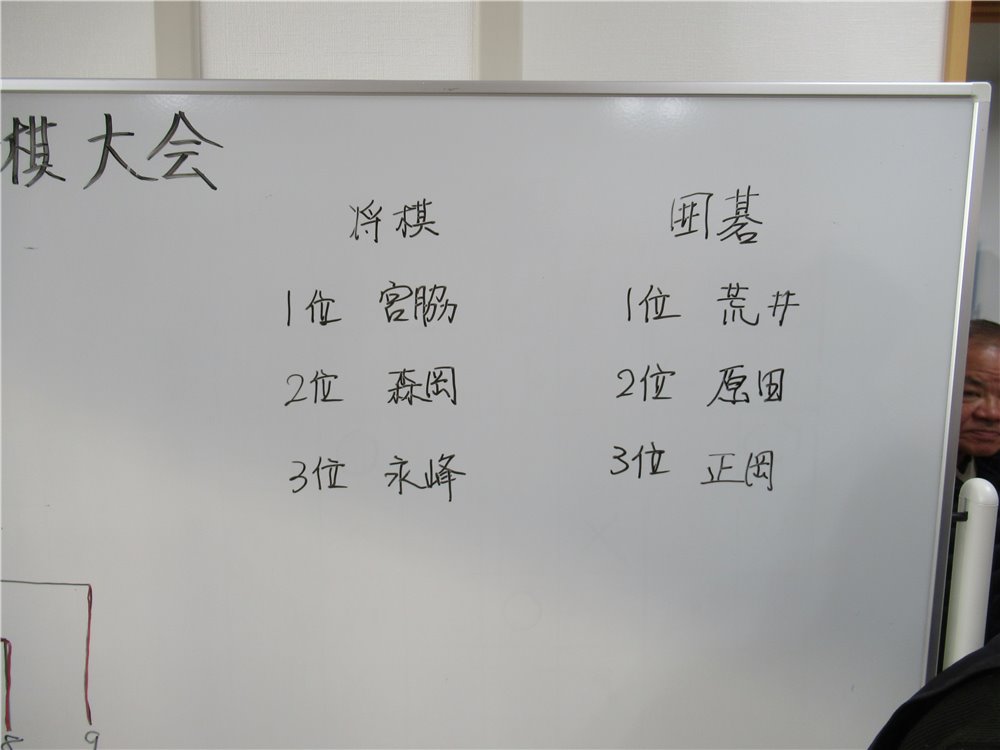 棋大会
将棋
1位 宮脇
2位 森岡
3位 永峰
囲碁
1位 荒井
2位 原田
3位 正岡
8 9